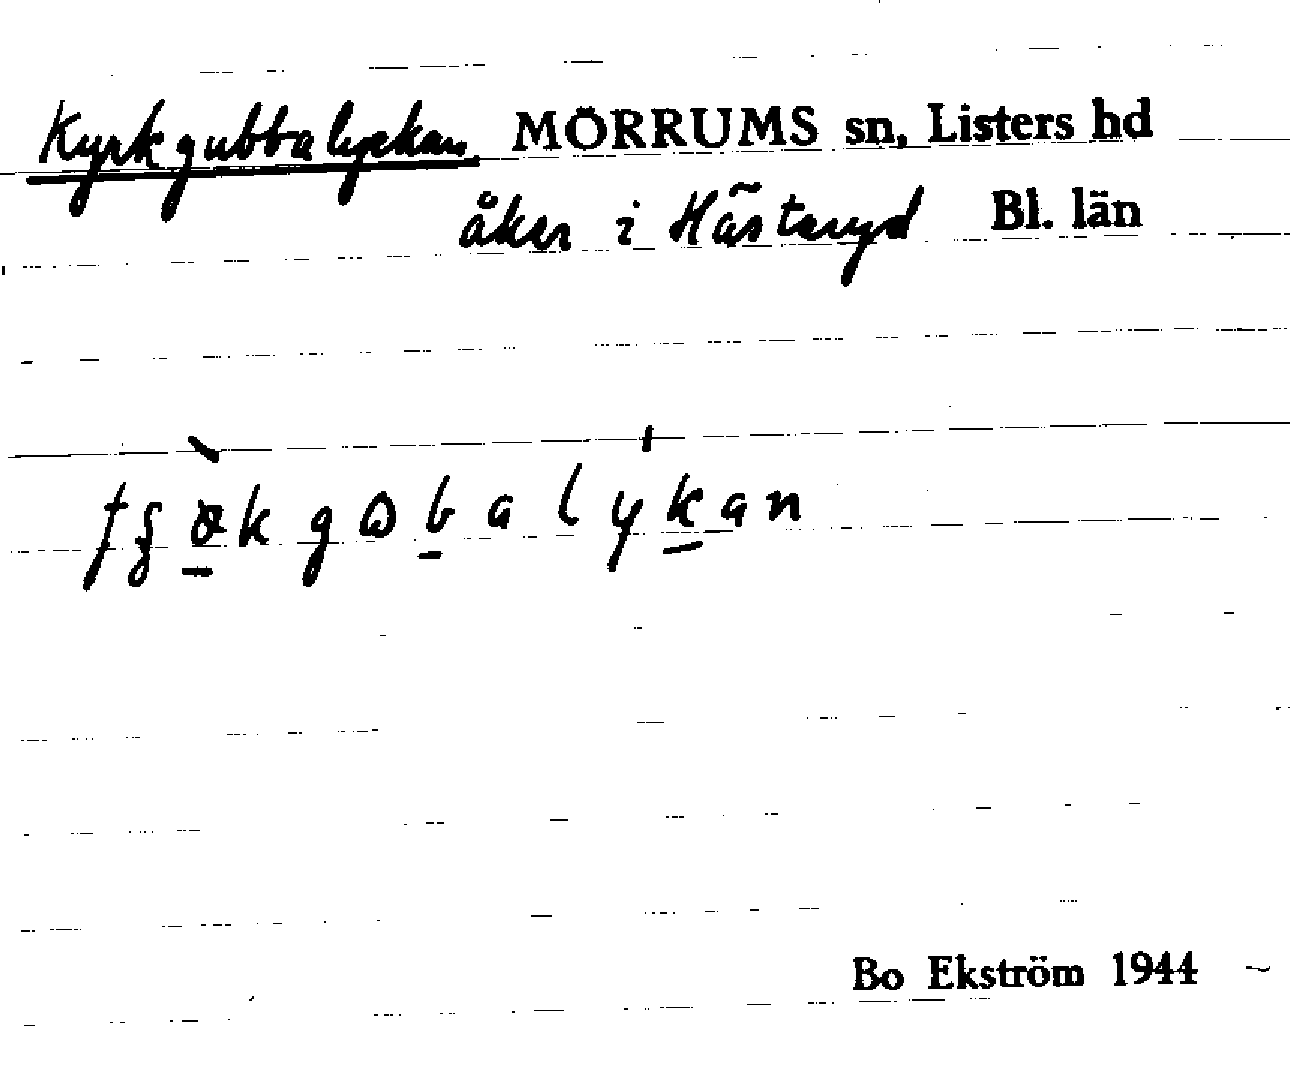 Kyrkgubbalyckan MÖRRUMS sn, Listers hd
åker i Hästaryd Bl. län
Bo Ekström 1944